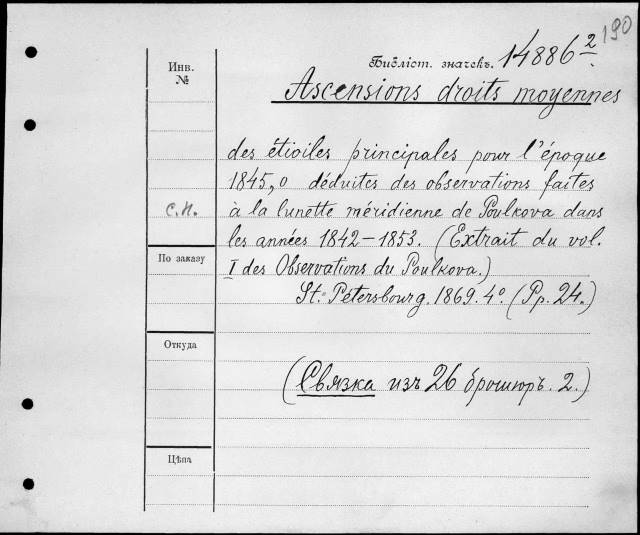 190
Инв. №
Библіот. значекъ. 14886 2.
Ascensions droits moyennes
des étioiles principales pour l'époque
1845,0 déduites des observations faites
С.П. à la lunette méridienne de Poulkova dans
les années 1842–1853. (Extrait du vol.
По заказу
I des Observations du Poulkova.)
St. Pétersbourg. 1869. 4º. (Pp. 24.)
Откуда
(Связка изъ 26 брошюръ. 2.)
Цѣна